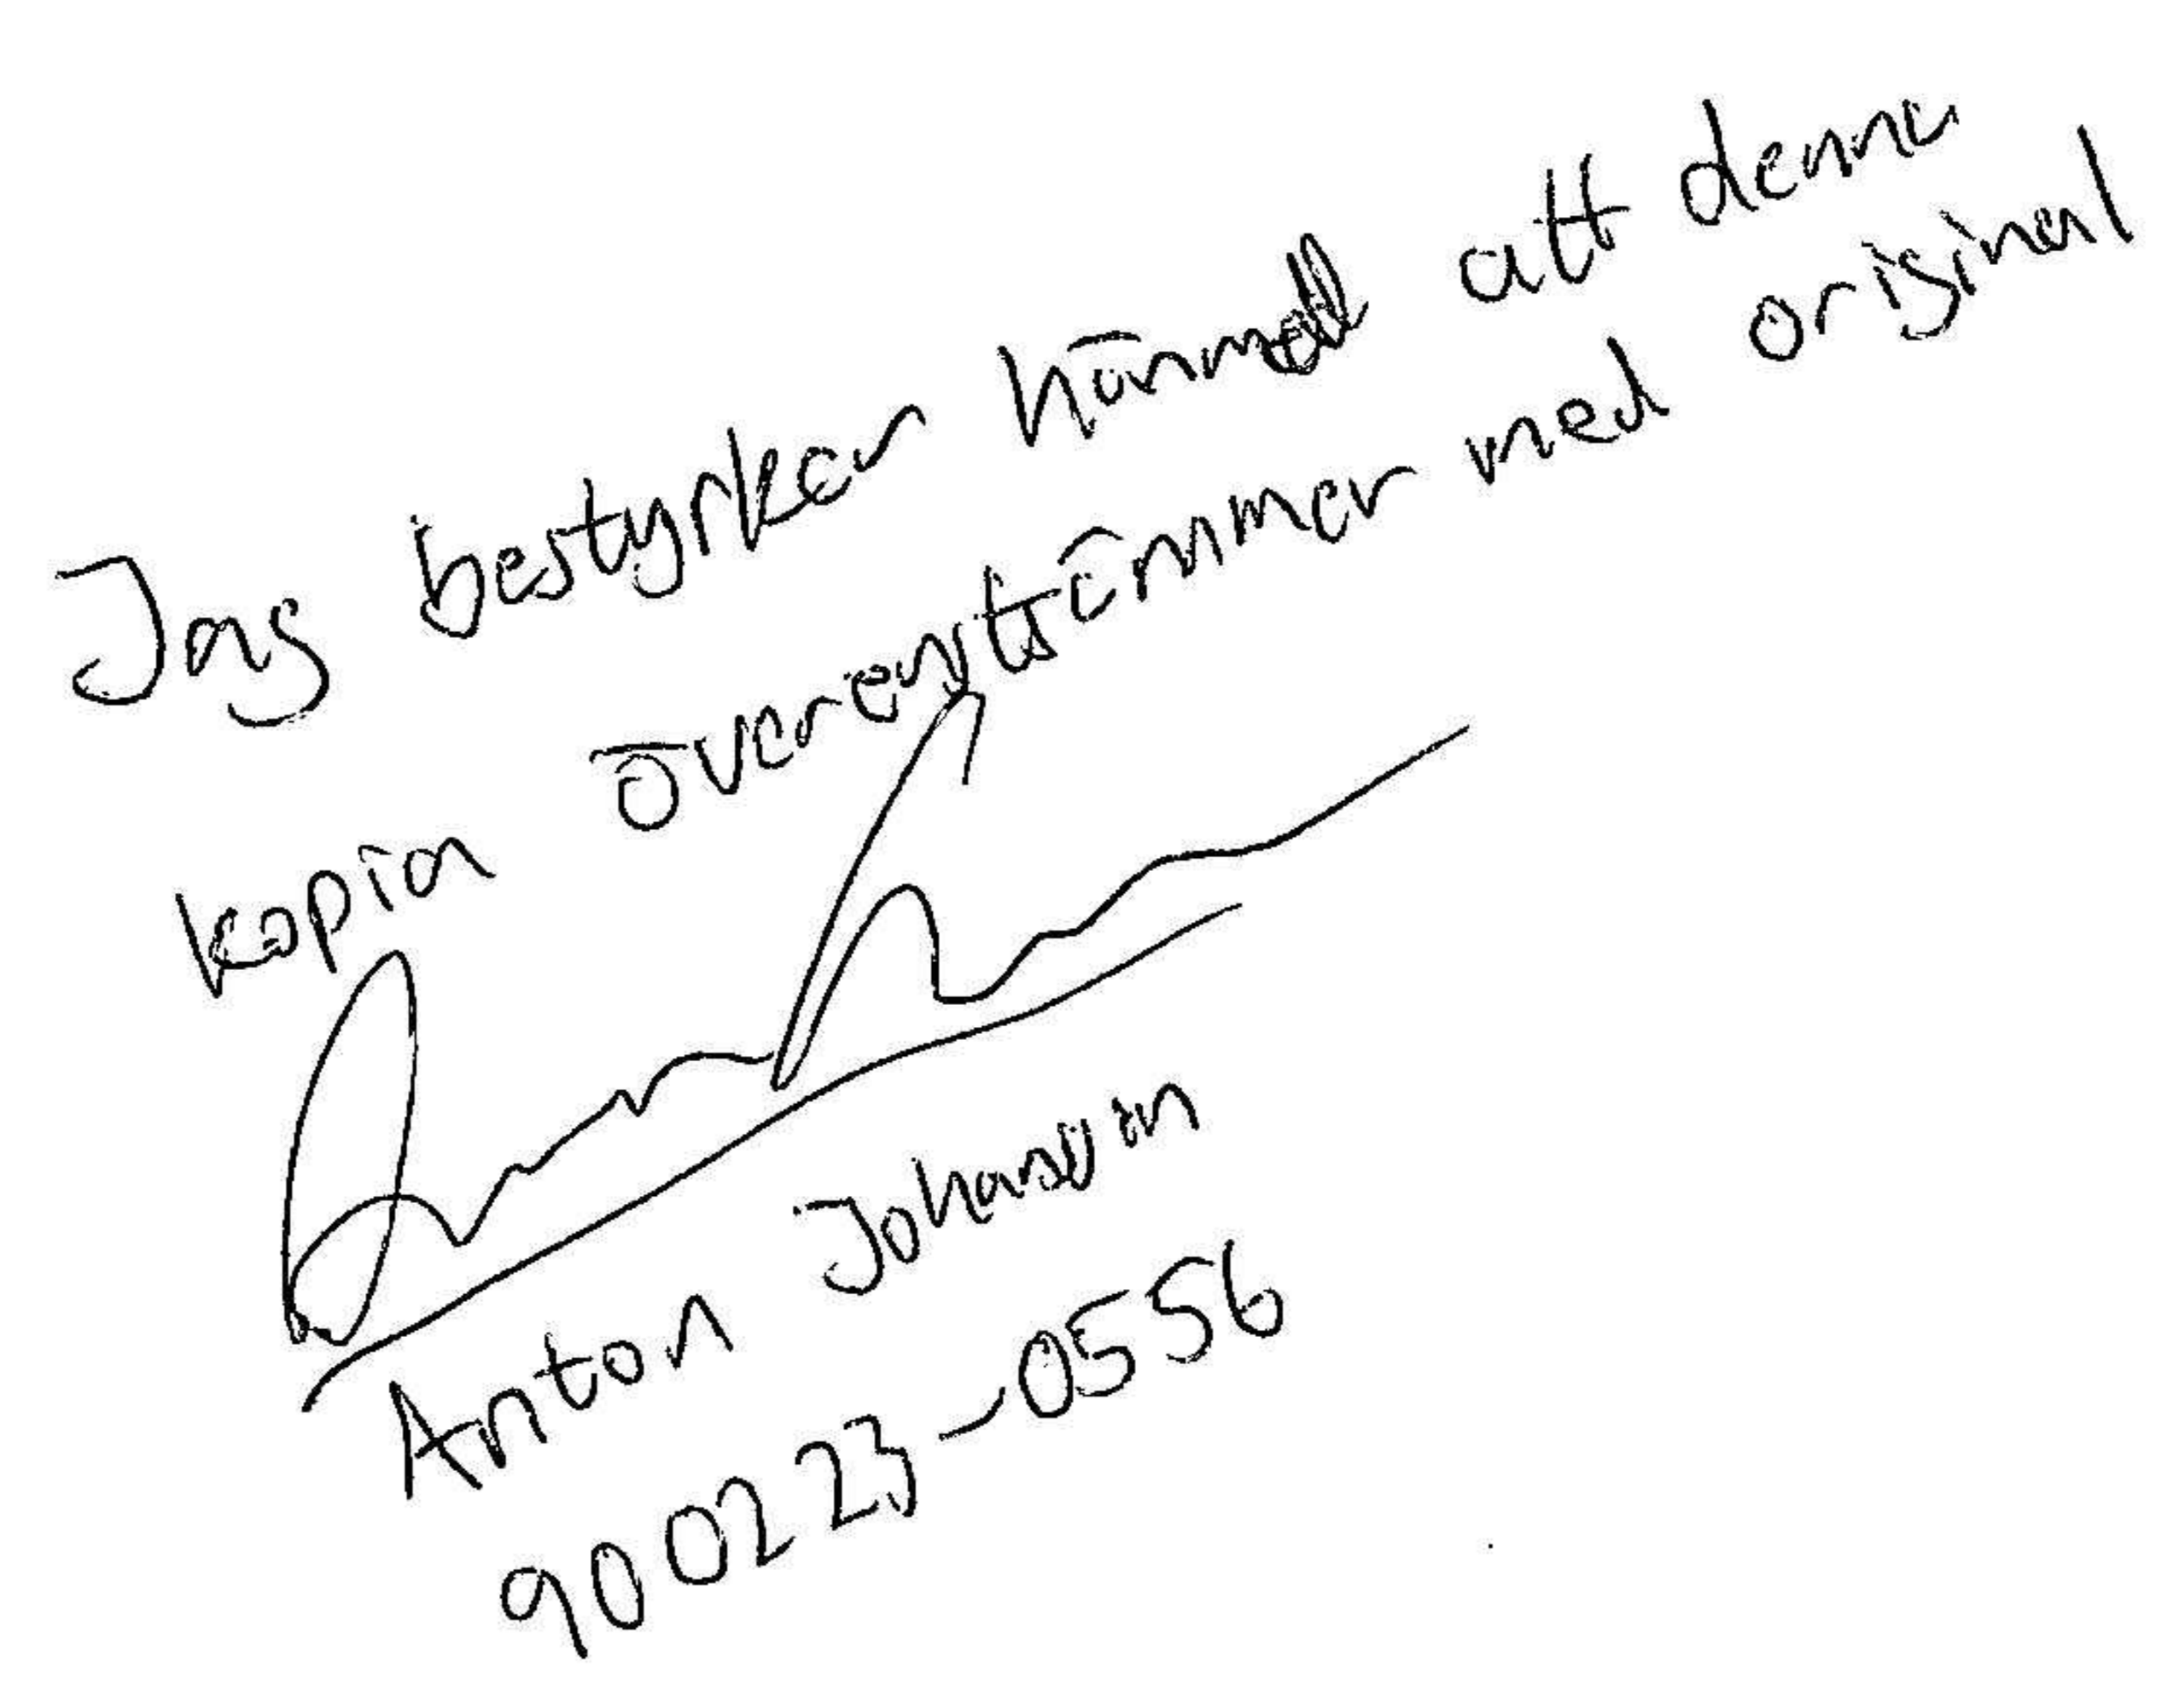 Jag bestyrker härmed att denna
kopia överenstämmer med original
Anton Johansson
900223-0556